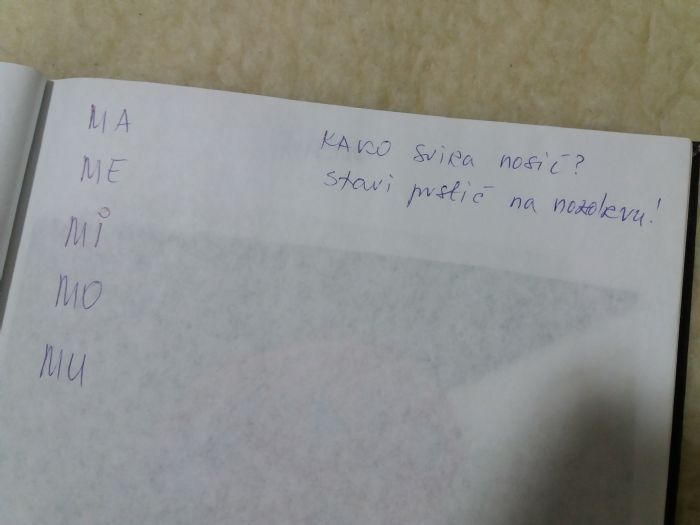 MA
ME
MI
MO
MU
KAKO svira nosić?
stavi prstić na nozdrvu!